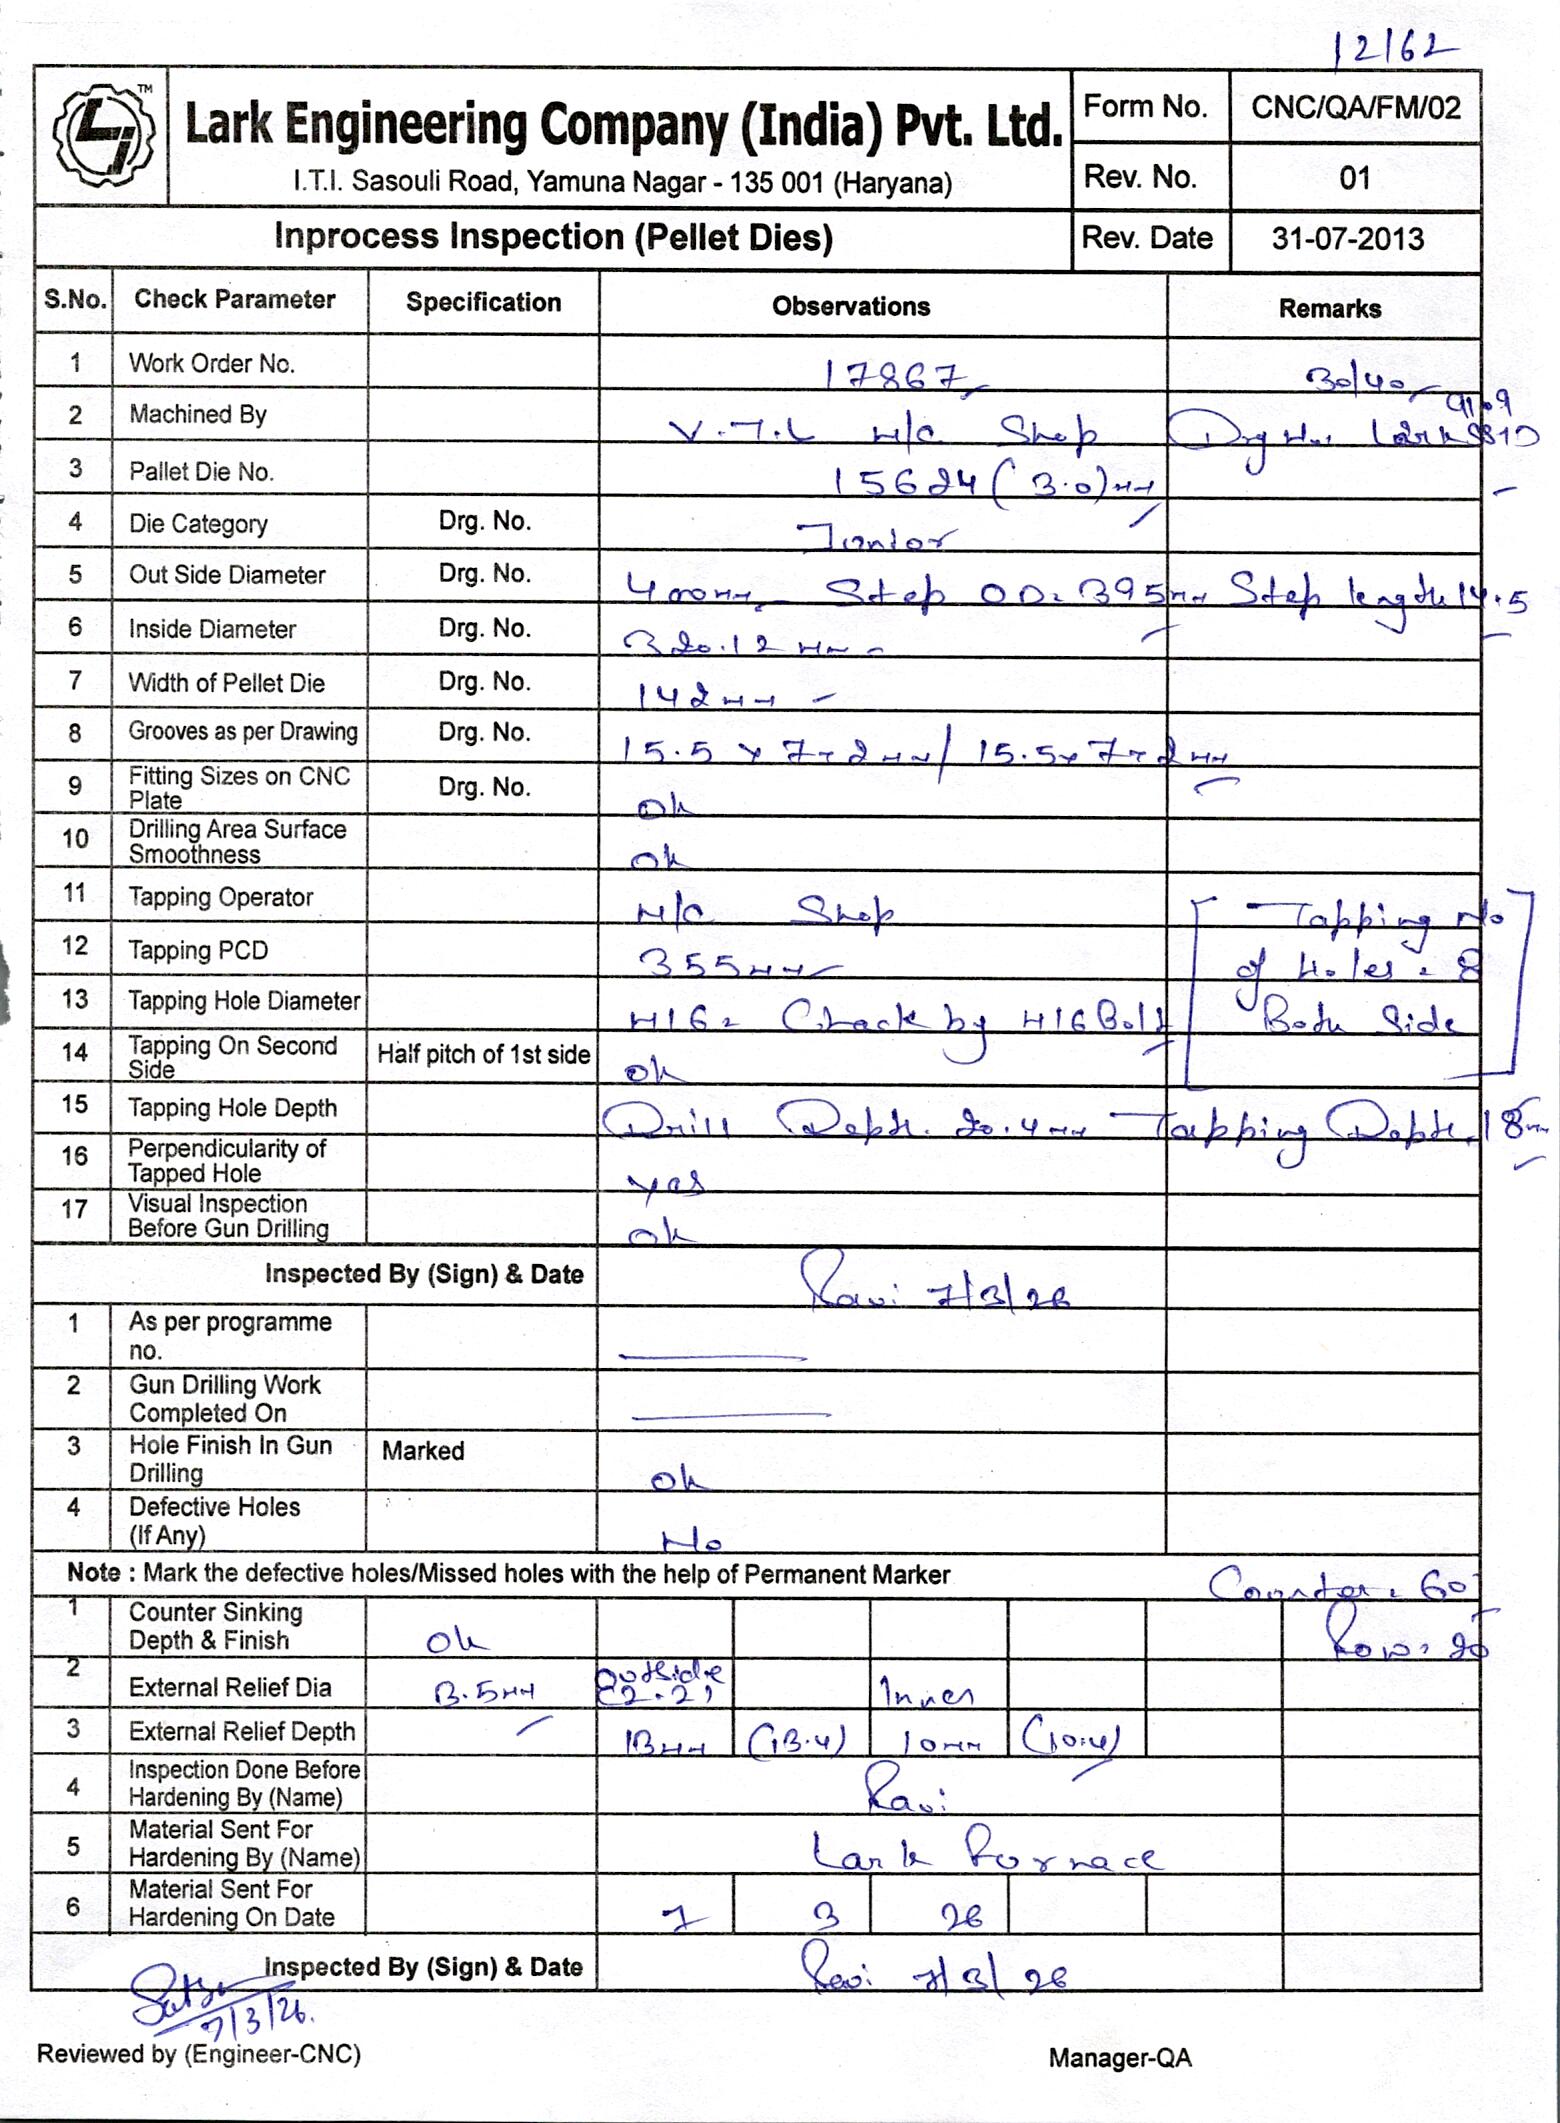 12162
TM
Lark Engineering Company (India) Pvt. Ltd.
I.T.I. Sasouli Road, Yamuna Nagar - 135 001 (Haryana)
Form No. CNC/QA/FM/02
Rev. No. 01
Inprocess Inspection (Pellet Dies) Rev. Date 31-07-2013
S.No. Check Parameter Specification Observations Remarks
1 Work Order No. 17867 30/40
2 Machined By V.T.L M/C Shop Drg No. Lark
3 Pallet Die No. 15624 (3.0)mm
4 Die Category Drg. No. Junior
5 Out Side Diameter Drg. No. 400mm Step OD. 395mm Step length 14.5
6 Inside Diameter Drg. No. 320.12 mm
7 Width of Pellet Die Drg. No. 142mm
8 Grooves as per Drawing Drg. No. 15.5 x 7-2mm/ 15.5x7-2mm
9 Fitting Sizes on CNC Plate Drg. No. Ok
10 Drilling Area Surface Smoothness Ok
11 Tapping Operator M/C Shop Tapping No
12 Tapping PCD 355mm of Holes = 8
13 Tapping Hole Diameter M16 = Check by M16 Bolt Both Side
14 Tapping On Second Side Half pitch of 1st side Ok
15 Tapping Hole Depth Drill Depth. 20.4mm Tapping Depth. 18mm
16 Perpendicularity of Tapped Hole yes
17 Visual Inspection Before Gun Drilling Ok
Inspected By (Sign) & Date Ravi 7/3/26
1 As per programme no.
2 Gun Drilling Work Completed On
3 Hole Finish In Gun Drilling Marked Ok
4 Defective Holes (If Any) No
Note : Mark the defective holes/Missed holes with the help of Permanent Marker Counter = 60°
1 Counter Sinking Depth & Finish Ok Row = 20
2 External Relief Dia 3.5mm Outside (2.2) Inner
3 External Relief Depth 13mm (13.4) 10mm (10.4)
4 Inspection Done Before Hardening By (Name) Ravi
5 Material Sent For Hardening By (Name) Lark Furnace
6 Material Sent For Hardening On Date 7 3 26
Inspected By (Sign) & Date Ravi 7/3/26
7/3/26.
Reviewed by (Engineer-CNC) Manager-QA